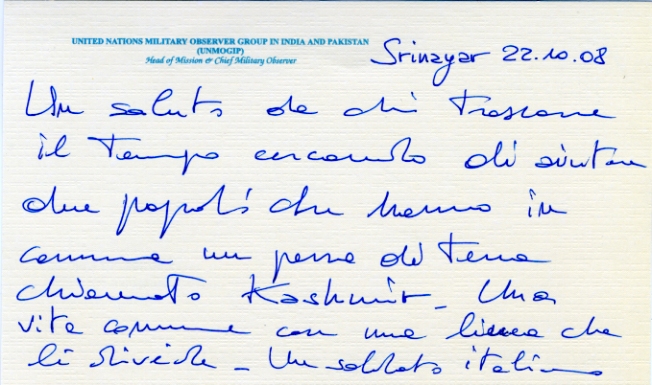 UNITED NATIONS MILITARY OBSERVER GROUP IN INDIA AND PAKISTAN
(UNMOGIP)
Head of Mission & Chief Military Observer
Srinagar 22.10.08
Un saluto da chi trascorre
il tempo cercando di aiutare
due popoli che hanno in
comune un pezzo di terra
chiamato Kashmir_ Una
vita comune con una linea che
li divide_ Un soldato italiano